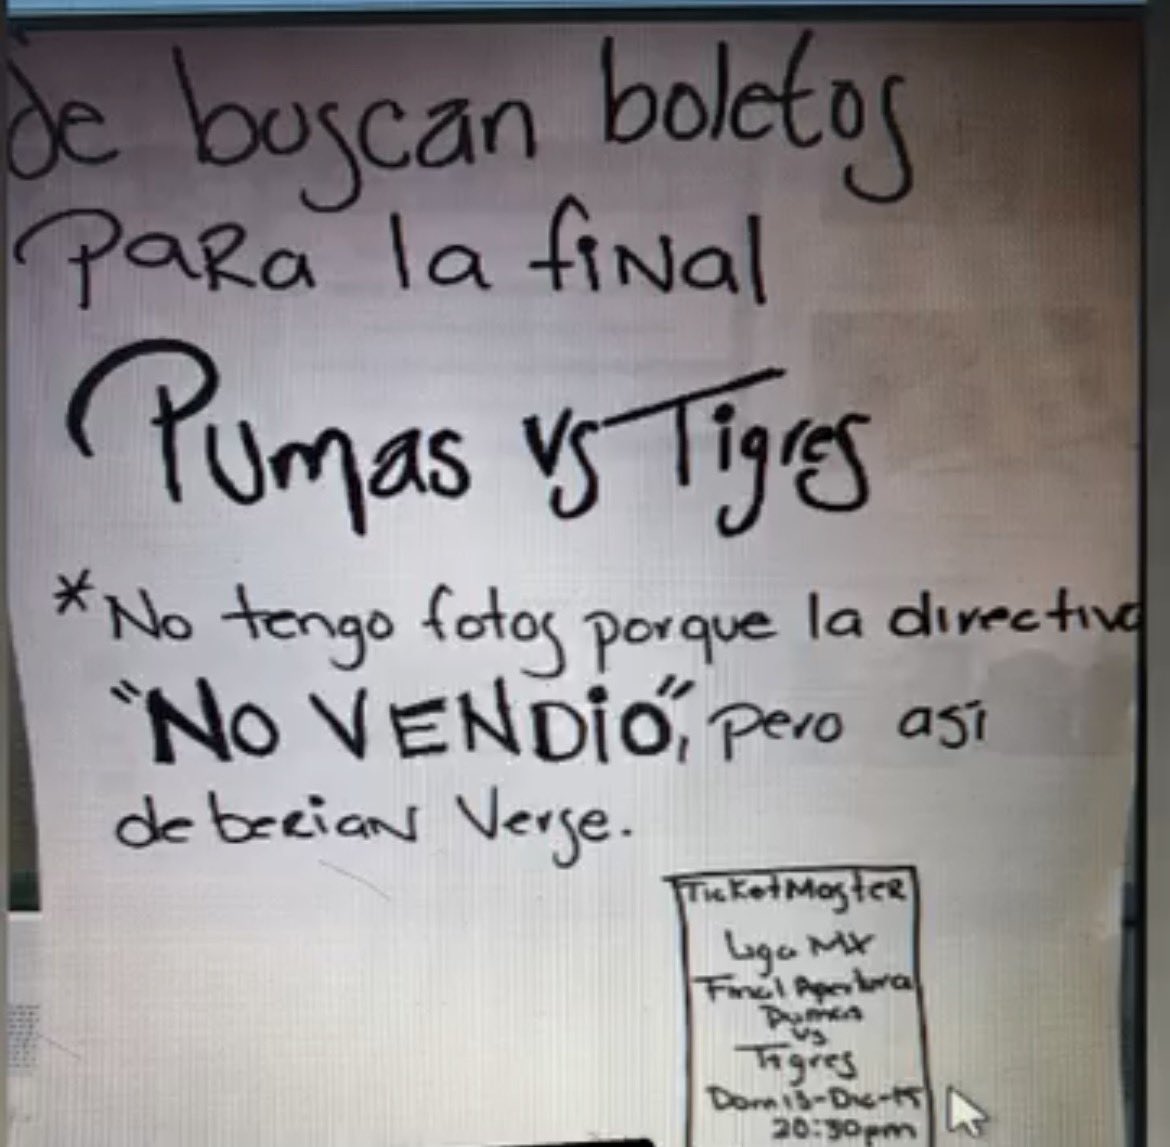 Se buscan boletos
para la final
Pumas vs Tigres
*No tengo fotos porque la directiva
"No VENDió", pero así
deberian verse.
TicketMaster
Liga MX
Final Apertura
Pumas
vs
Tigres
Dom 13-Dic-15
20:30pm